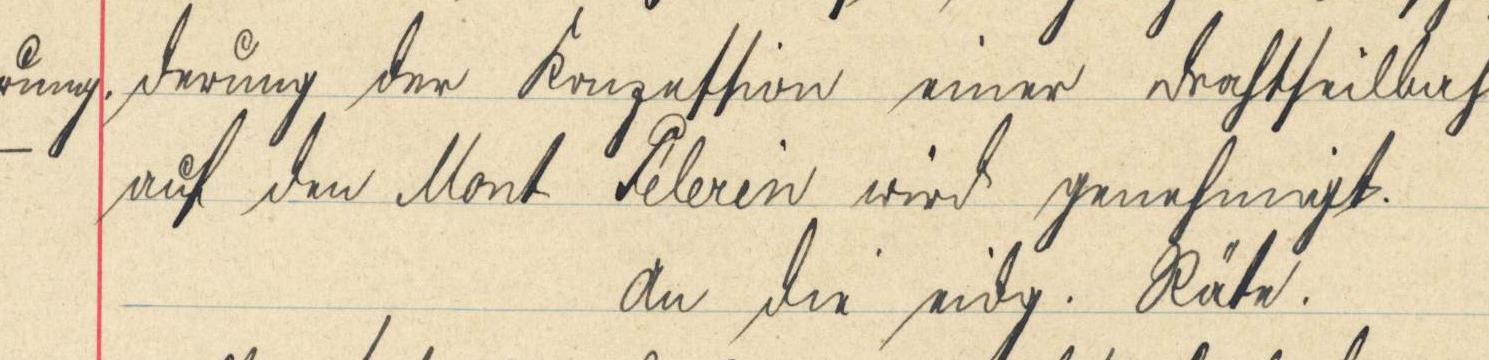 rung. derung der Konzession einer Drahtseilbah
auf den Mont Pélerin wird genehmigt.
An die eidg. Räte.